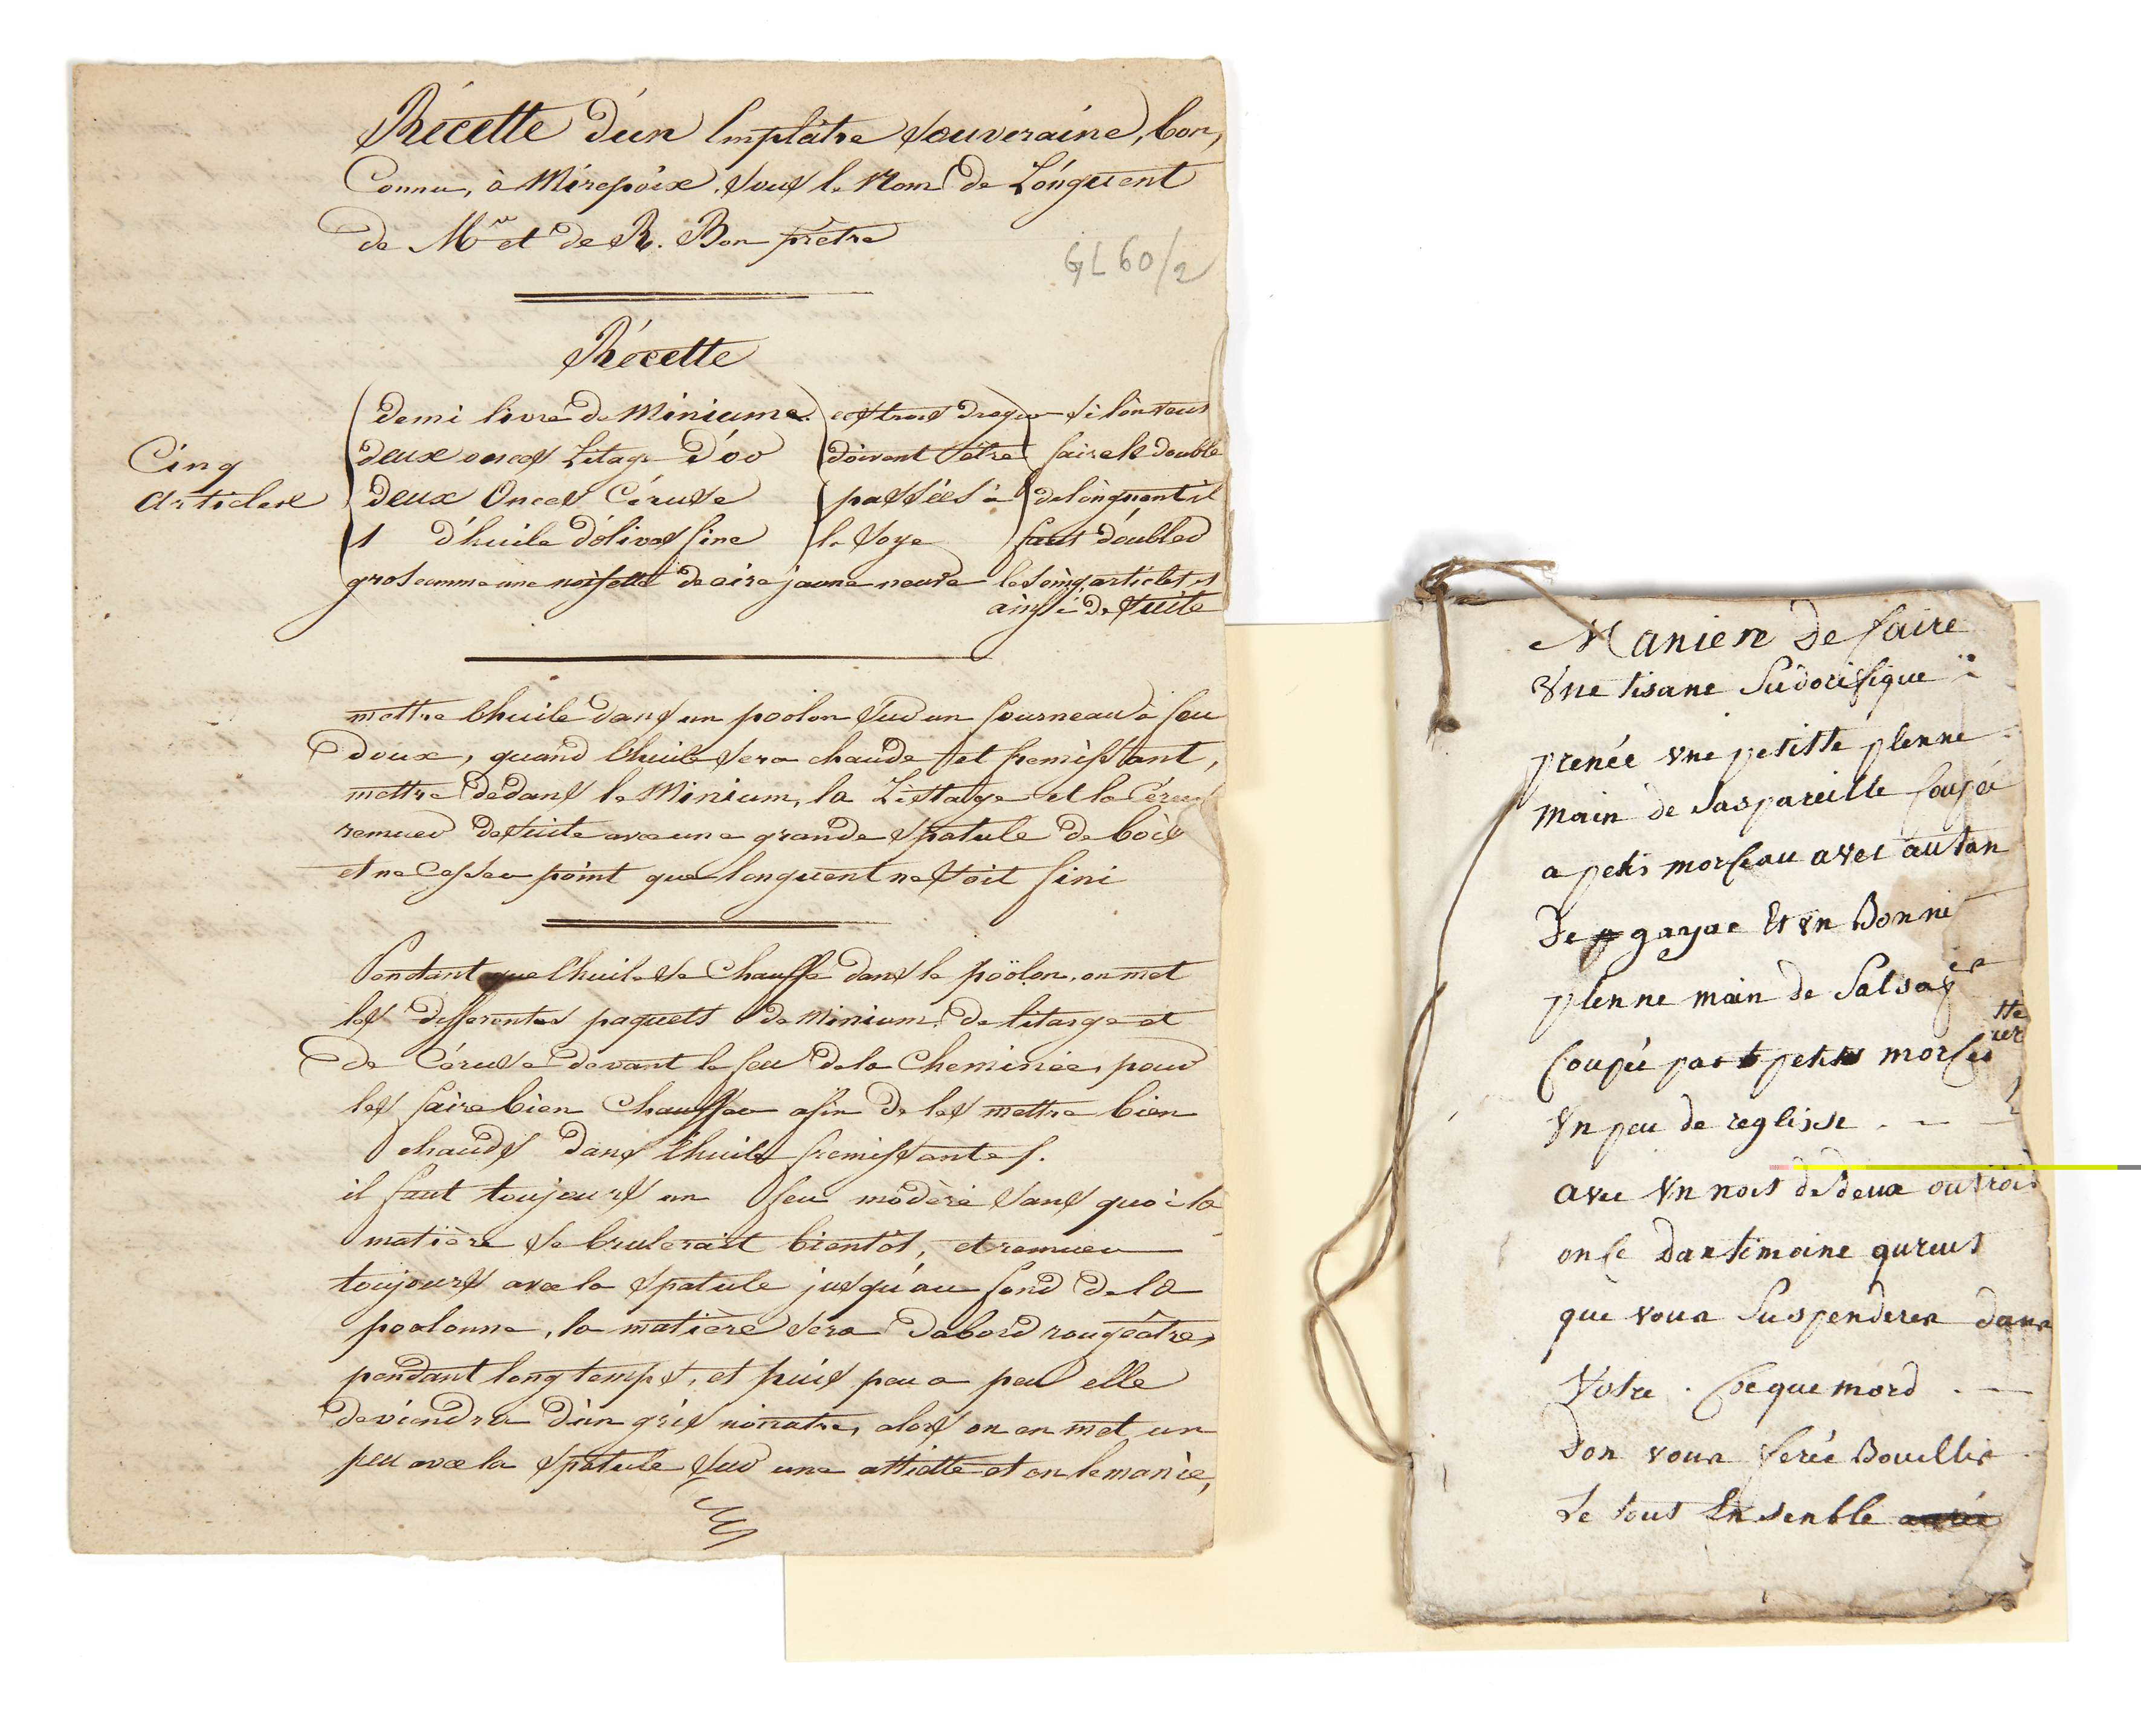 Récette d'un Emplâtre Souveraine, bon,
Connu, à Mirepoix, sous le Nom de L'onguent
de Mr et de R. Bon prêtre
GL 60/2
Récette
Cinq
articles
demi livre de Minium
deux onces Litage d'or
deux Onces Céruse
1 d'huile d'olives fine
gros comme une noisette de cire jaune neuve
ces trois drogues
doivent être
passées à
la Soye
si l'on veut
faire le double
de l'onguent il
faut doubler
les cinq articles et
ainsi de suite
mettre l'huile dans un poolon sur un fourneau à feu
doux, quand l'huile sera chaude et fremissant,
mettre dedans le Minium, la Litarge et la Céruse
remuer de suite avec une grande spatule de bois
et ne cesser point que l'onguent ne soit fini
Pendant que l'huile se chauffe dans le poölon, on met
les differentes paquets de Minium, de litarge et
de Céruse devant le feu de la Cheminée, pour
les faire bien Chauffer afin de les mettre bien
chauds dans l'huile fremissantes.
il faut toujours un feu modèré sans quoi la
matière se brulerait bientôt, et remuer
toujours avec la spatule jusqu'au fond de la
poolonne, la matière sera d'abord rougeâtre,
pendant long temps, et puis peu a peu elle
deviendra d'un gris noiratre, alors on en met un
peu avec la spatule sur une assiette et on le manie,
Maniere de faire
Vne tisane Sudorifique
prenée vne petitte plenne
main de Saspareille Coupée
a petis morseau avec autan
De gayac Et vn Bonne
plenne main de Salsa
Coupée par petits
Vn peu de reglisse . - -
avec Vn noit de deux ou trois
onse Dantimoine qureut
que vous Suspenderes dans
Votre . Coquemord . -
Don vous ferée Bouillir
Le tout Ensenble